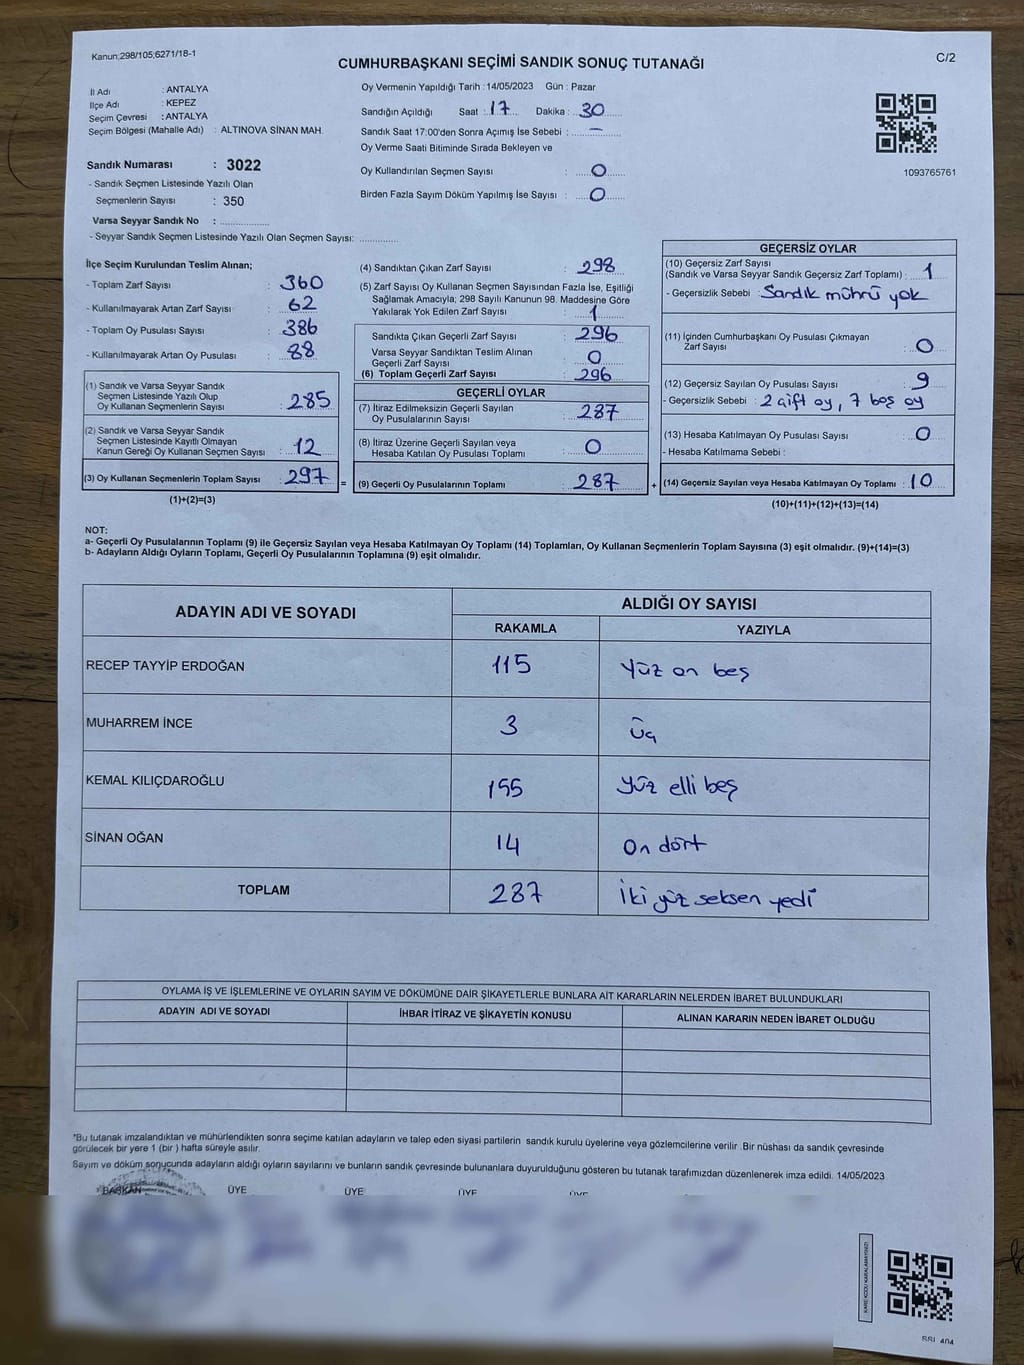 Kanun;298/105;6271/18-1
C/2
CUMHURBAŞKANI SEÇİMİ SANDIK SONUÇ TUTANAĞI
İl Adı : ANTALYA
İlçe Adı : KEPEZ
Seçim Çevresi : ANTALYA
Seçim Bölgesi (Mahalle Adı) : ALTINOVA SİNAN MAH.
Sandık Numarası : 3022
- Sandık Seçmen Listesinde Yazılı Olan
Seçmenlerin Sayısı : 350
Varsa Seyyar Sandık No : ..............
- Seyyar Sandık Seçmen Listesinde Yazılı Olan Seçmen Sayısı: ............
Oy Vermenin Yapıldığı Tarih : 14/05/2023 Gün : Pazar
Sandığın Açıldığı Saat : 17 Dakika : 30
Sandık Saat 17:00'den Sonra Açımış İse Sebebi : —
Oy Verme Saati Bitiminde Sırada Bekleyen ve
Oy Kullandırılan Seçmen Sayısı : 0
Birden Fazla Sayım Döküm Yapılmış İse Sayısı : 0
1093765761
İlçe Seçim Kurulundan Teslim Alınan;
- Toplam Zarf Sayısı : 360
- Kullanılmayarak Artan Zarf Sayısı : 62
- Toplam Oy Pusulası Sayısı : 386
- Kullanılmayarak Artan Oy Pusulası : 88
(1) Sandık ve Varsa Seyyar Sandık
Seçmen Listesinde Yazılı Olup
Oy Kullanan Seçmenlerin Sayısı : 285
(2) Sandık ve Varsa Seyyar Sandık
Seçmen Listesinde Kayıtlı Olmayan
Kanun Gereği Oy Kullanan Seçmen Sayısı : 12
(3) Oy Kullanan Seçmenlerin Toplam Sayısı : 297
(1)+(2)=(3)
=
(4) Sandıktan Çıkan Zarf Sayısı : 298
(5) Zarf Sayısı Oy Kullanan Seçmen Sayısından Fazla İse, Eşitliği
Sağlamak Amacıyla; 298 Sayılı Kanunun 98. Maddesine Göre
Yakılarak Yok Edilen Zarf Sayısı : 1
Sandıkta Çıkan Geçerli Zarf Sayısı : 296
Varsa Seyyar Sandıktan Teslim Alınan
Geçerli Zarf Sayısı : 0
(6) Toplam Geçerli Zarf Sayısı : 296
GEÇERLİ OYLAR
(7) İtiraz Edilmeksizin Geçerli Sayılan
Oy Pusulalarının Sayısı : 287
(8) İtiraz Üzerine Geçerli Sayılan veya
Hesaba Katılan Oy Pusulası Toplamı : 0
(9) Geçerli Oy Pusulalarının Toplamı : 287
+
GEÇERSİZ OYLAR
(10) Geçersiz Zarf Sayısı
(Sandık ve Varsa Seyyar Sandık Geçersiz Zarf Toplamı) : 1
- Geçersizlik Sebebi : Sandık mührü yok
(11) İçinden Cumhurbaşkanı Oy Pusulası Çıkmayan
Zarf Sayısı : 0
(12) Geçersiz Sayılan Oy Pusulası Sayısı : 9
- Geçersizlik Sebebi : 2 çift oy, 7 boş oy
(13) Hesaba Katılmayan Oy Pusulası Sayısı : 0
- Hesaba Katılmama Sebebi :
(14) Geçersiz Sayılan veya Hesaba Katılmayan Oy Toplamı : 10
(10)+(11)+(12)+(13)=(14)
NOT:
a- Geçerli Oy Pusulalarının Toplamı (9) ile Geçersiz Sayılan veya Hesaba Katılmayan Oy Toplamı (14) Toplamları, Oy Kullanan Seçmenlerin Toplam Sayısına (3) eşit olmalıdır. (9)+(14)=(3)
b- Adayların Aldığı Oyların Toplamı, Geçerli Oy Pusulalarının Toplamına (9) eşit olmalıdır.
ADAYIN ADI VE SOYADI ALDIĞI OY SAYISI
RAKAMLA YAZIYLA
RECEP TAYYİP ERDOĞAN 115 Yüz on beş
MUHARREM İNCE 3 Üç
KEMAL KILIÇDAROĞLU 155 Yüz elli beş
SİNAN OĞAN 14 On dört
TOPLAM 287 İki yüz seksen yedi
OYLAMA İŞ VE İŞLEMLERİNE VE OYLARIN SAYIM VE DÖKÜMÜNE DAİR ŞİKAYETLERLE BUNLARA AİT KARARLARIN NELERDEN İBARET BULUNDUKLARI
ADAYIN ADI VE SOYADI İHBAR İTİRAZ VE ŞİKAYETİN KONUSU ALINAN KARARIN NEDEN İBARET OLDUĞU
*Bu tutanak imzalandıktan ve mühürlendikten sonra seçime katılan adayların ve talep eden siyasi partilerin sandık kurulu üyelerine veya gözlemcilerine verilir .Bir nüshası da sandık çevresinde
görülecek bir yere 1 (bir ) hafta süreyle asılır.
Sayım ve döküm sonucunda adayların aldığı oyların sayılarını ve bunların sandık çevresinde bulunanlara duyurulduğunu gösteren bu tutanak tarafımızdan düzenlenerek imza edildi. 14/05/2023
BAŞKAN ÜYE ÜYE ÜYE ÜYE
KARE KODU KARALAMAYINIZ!